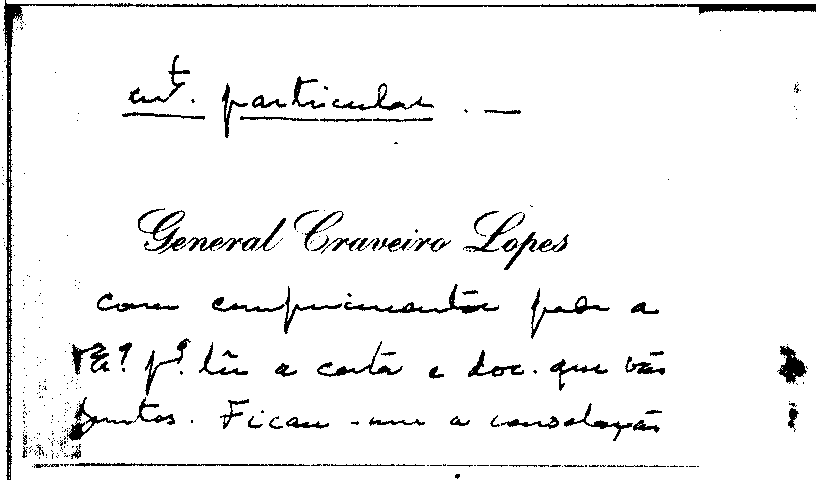 mt. particular. —
General Craveiro Lopes
com cumprimentos pede a
p.ª lêr a carta e doc. que vão
juntos. Ficou-me a consolação